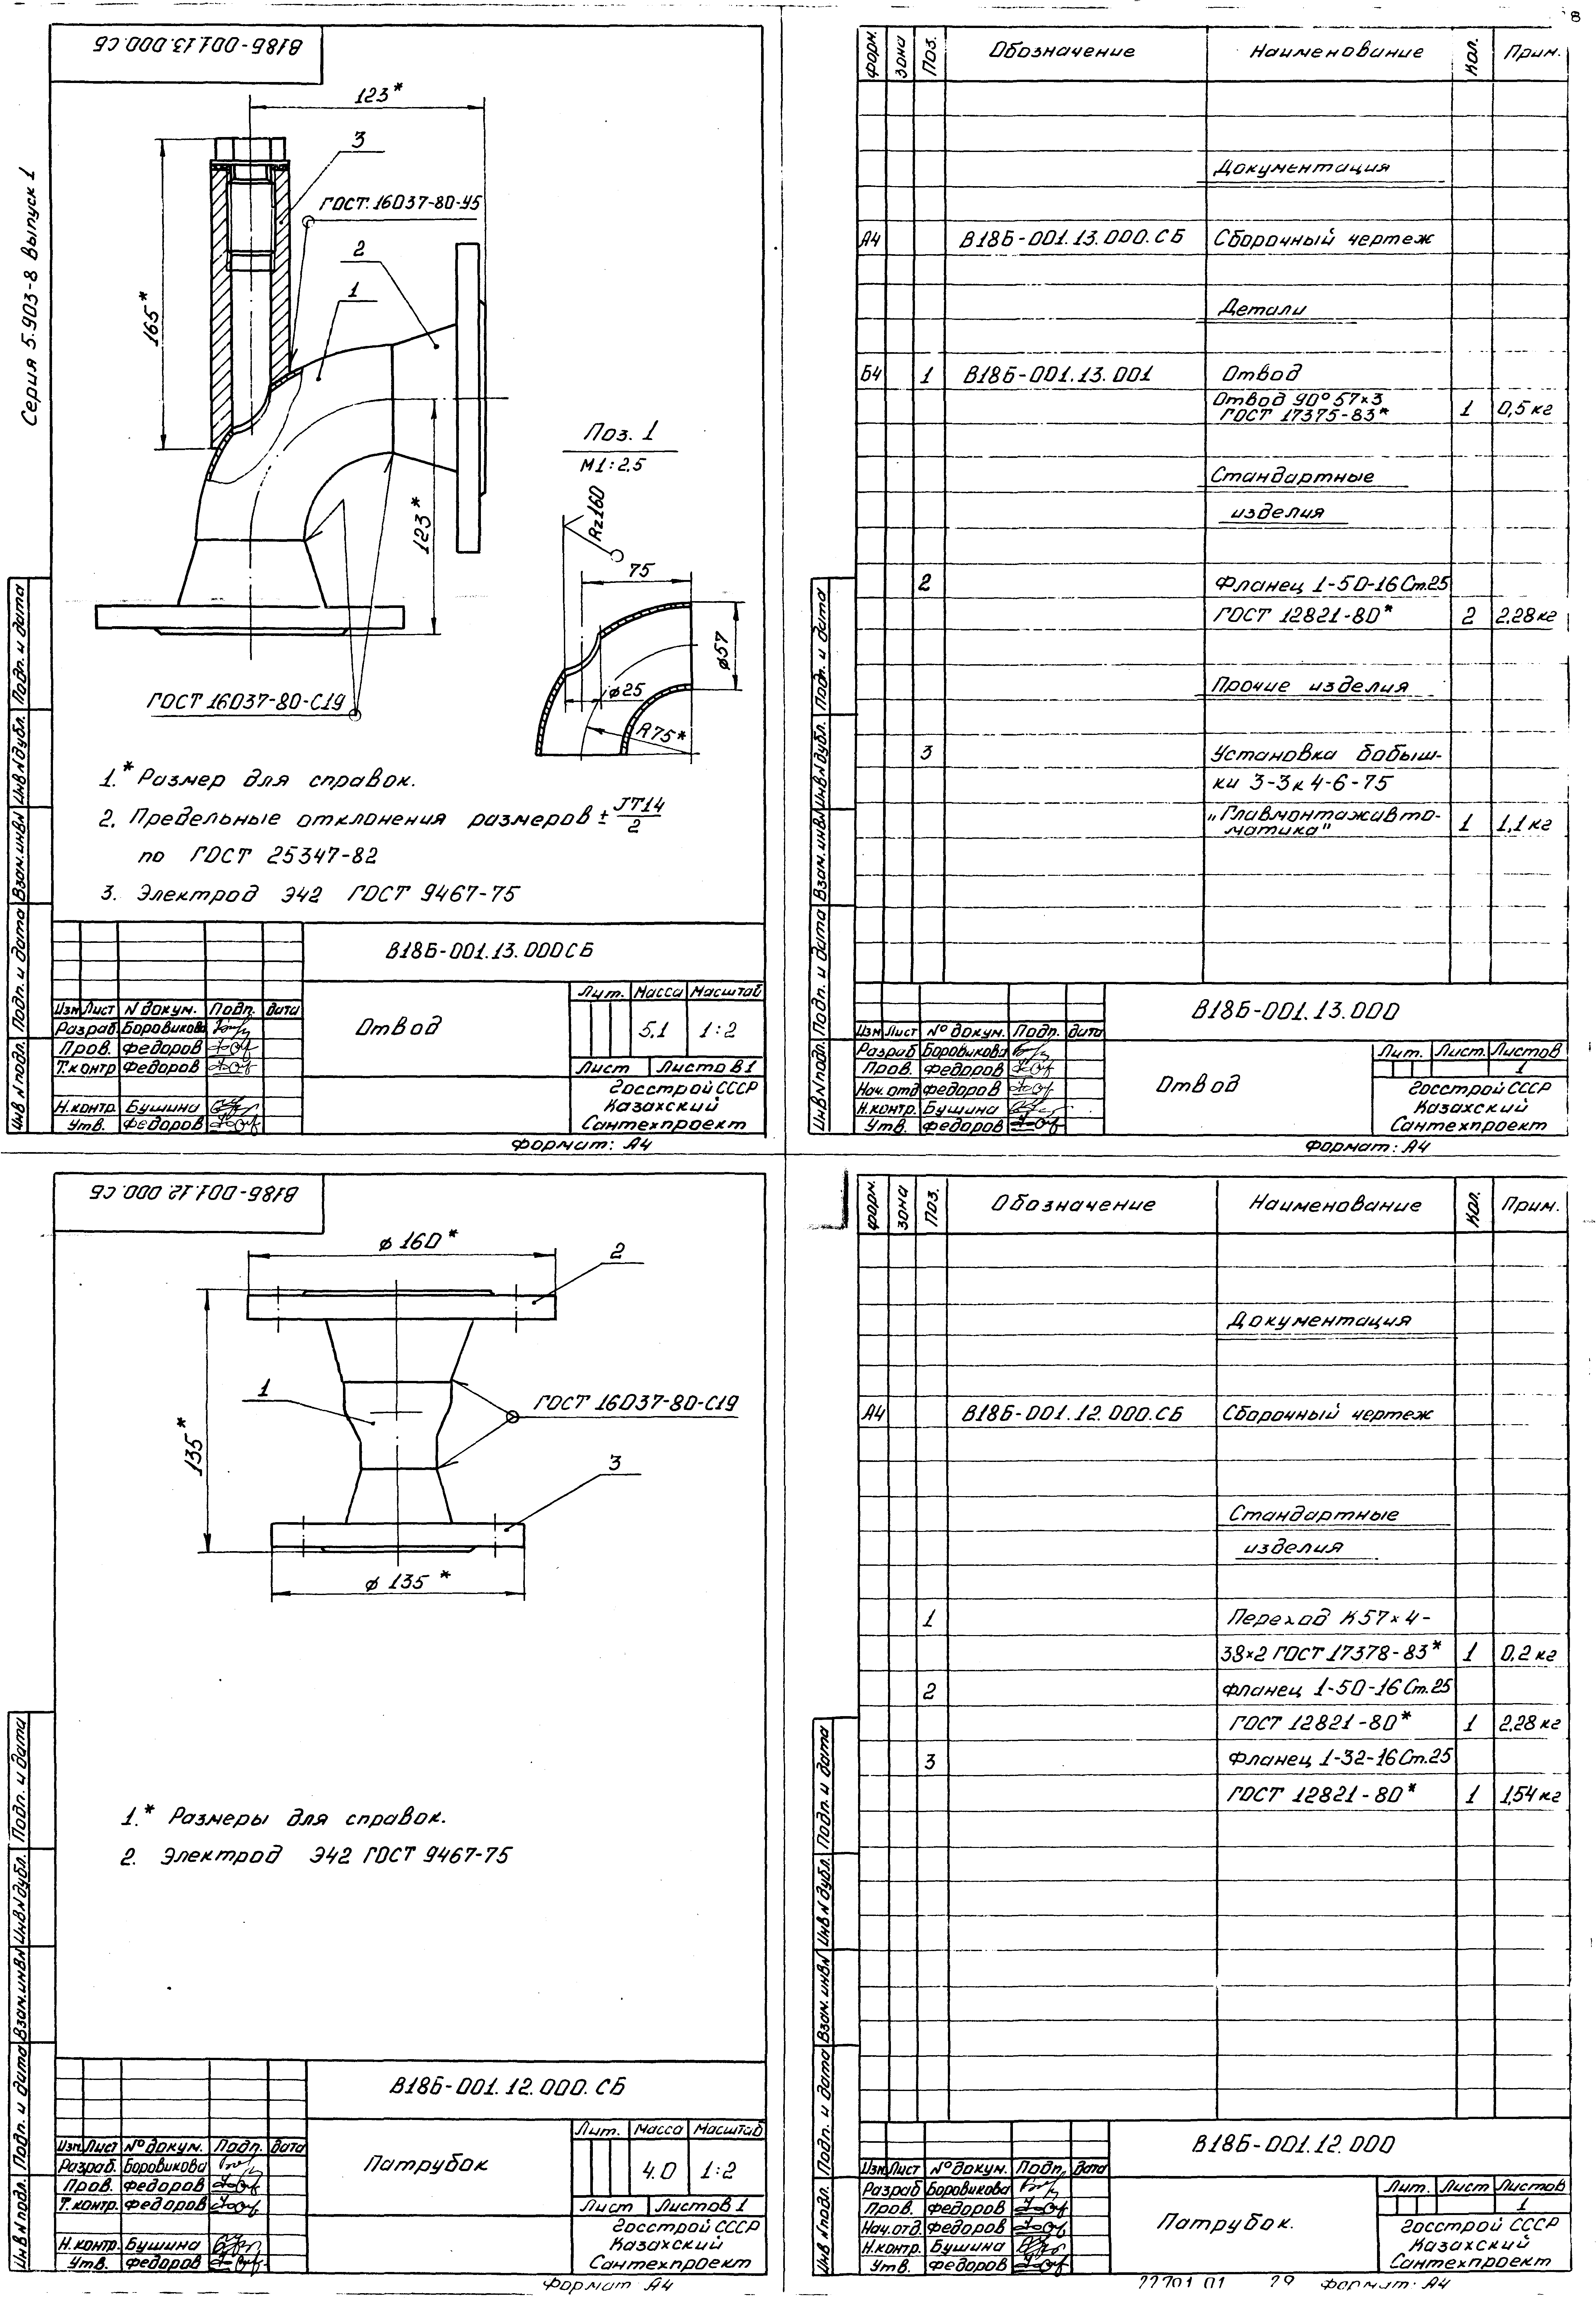 8
В18Б-001.13.000.СБ
Серия 5.903-8 Выпуск 1
123*
3
ГОСТ.16037-80-У5
2
1
165*
123*
Поз. 1
М1:2,5
Rz160
75
⌀57
⌀25
R75*
ГОСТ 16037-80-С19
1.* Размер для справок.
2. Предельные отклонения размеров ± JT14/2
по ГОСТ 25347-82
3. Электрод Э42 ГОСТ 9467-75
В18Б-001.13.000СБ
Изм Лист N докум. Подп. дата
Разраб. Боровикова
Пров. Федоров
Т.контр Федоров
Н.контр. Бушина
Утв. Федоров
Отвод
Лит. Масса Масштаб
5,1 1:2
Лист Листов 1
Госстрой СССР
Казахский
Сантехпроект
Формат: А4
Инв N подл. Подп. и дата Взам.инвN Инв N дубл. Подп. и дата
форм. зона Поз. Обозначение Наименование Кол. Прим.
Документация
А4 В18Б-001.13.000.СБ Сборочный чертеж
Детали
Б4 1 В18Б-001.13.001 Отвод
Отвод 90° 57×3
ГОСТ 17375-83* 1 0,5 кг
Стандартные
изделия
2 Фланец 1-50-16 Ст.25
ГОСТ 12821-80* 2 2,28 кг
Прочие изделия
3 Установка бобыш-
ки 3-3к4-6-75
„Главмонтажавто-
матика" 1 1,1 кг
В18Б-001.13.000
Изм Лист № докум. Подп. дата
Разраб Боровикова
Пров. Федоров
Нач.отд Федоров
Н.контр. Бушина
Утв. Федоров
Отвод
Лит. Лист. Листов
1
Госстрой СССР
Казахский
Сантехпроект
Формат: А4
Инв N подл. Подп. и дата Взам.инвN Инв N дубл. Подп. и дата
В18Б-001.12.000.СБ
⌀160*
2
1
ГОСТ 16037-80-С19
135*
3
⌀135*
1.* Размеры для справок.
2. Электрод Э42 ГОСТ 9467-75
В18Б-001.12.000.СБ
Изм Лист № докум. Подп. дата
Разраб. Боровикова
Пров. Федоров
Т.контр. Федоров
Н.контр. Бушина
Утв. Федоров
Патрубок
Лит. Масса Масштаб
4.0 1:2
Лист Листов 1
Госстрой СССР
Казахский
Сантехпроект
Формат А4
Инв N подл. Подп. и дата Взам.инвN Инв N дубл. Подп. и дата
форм. зона Поз. Обозначение Наименование Кол. Прим.
Документация
А4 В18Б-001.12.000.СБ Сборочный чертеж
Стандартные
изделия
1 Переход К57×4-
38×2 ГОСТ 17378-83* 1 0,2 кг
2 Фланец 1-50-16 Ст.25
ГОСТ 12821-80* 1 2,28 кг
3 Фланец 1-32-16 Ст.25
ГОСТ 12821-80* 1 1,54 кг
В18Б-001.12.000
Изм Лист № докум. Подп. Дата
Разраб Боровикова
Пров. Федоров
Нач.отд. Федоров
Н.контр. Бушина
Утв. Федоров
Патрубок.
Лит. Лист Листов
1
Госстрой СССР
Казахский
Сантехпроект
22701 01 29 Формат: А4
Инв N подл. Подп. и дата Взам.инвN Инв N дубл. Подп. и дата